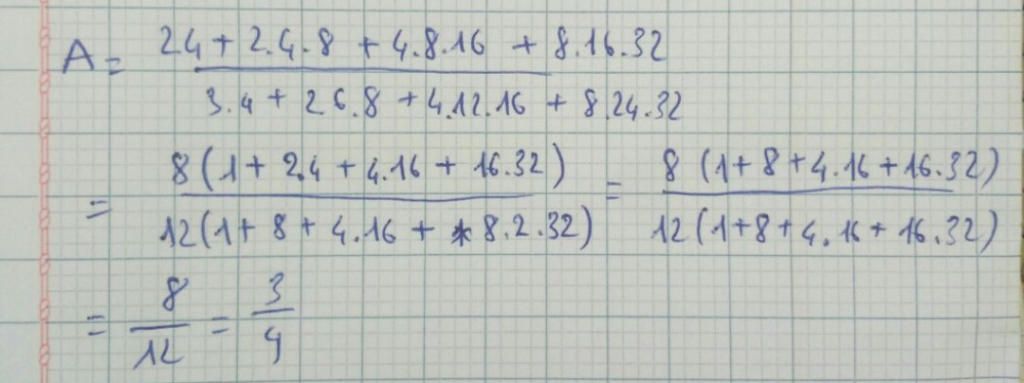 A = 2.4 + 2.4.8 + 4.8.16 + 8.16.32
3.4 + 2.6.8 + 4.12.16 + 8.24.32
= 8(1 + 2.4 + 4.16 + 16.32) = 8 (1+8+4.16+16.32)
12(1+8+4.16 + 8.2.32) 12(1+8+4.16+16.32)
= 8 = 3
12 4